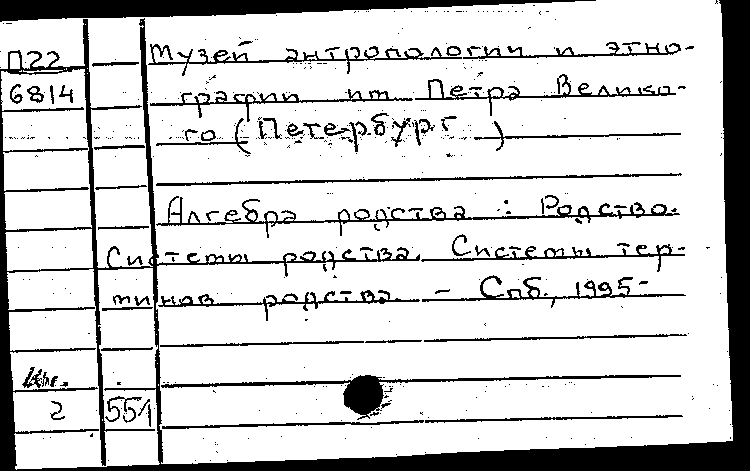 П22 Музей антропологии и этно-
6814 графии им Петра Велико-
го (Петербург )
Алгебра родства : Родство.
Системы родства. Системы тер-
минов родства. - Спб., 1995-
2 551